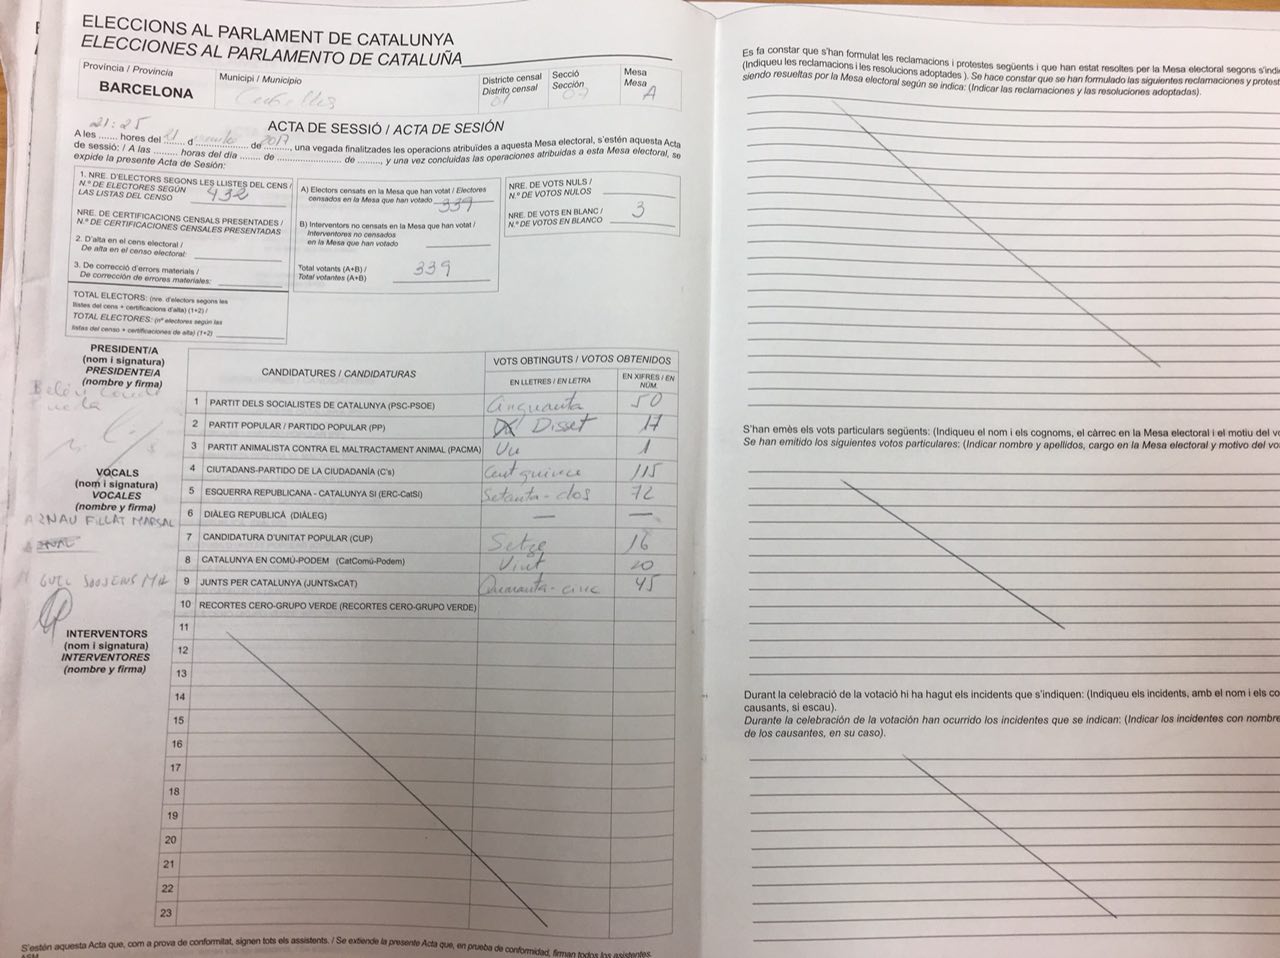 ELECCIONS AL PARLAMENT DE CATALUNYA
ELECCIONES AL PARLAMENTO DE CATALUÑA
Província / Provincia
BARCELONA
Municipi / Municipio
Districte censal
Distrito censal
01
Secció
Sección
07
Mesa
Mesa
A
ACTA DE SESSIÓ / ACTA DE SESIÓN
21:25
A les ....... hores del 21 d ............ de 2017, una vegada finalitzades les operacions atribuïdes a aquesta Mesa electoral, s'estén aquesta Acta
de sessió: / A las ......... horas del día ........ de ......................... de ........, y una vez concluidas las operaciones atribuidas a esta Mesa electoral, se
expide la presente Acta de Sesión:
1. NRE. D'ELECTORS SEGONS LES LLISTES DEL CENS /
N.º DE ELECTORES SEGÚN
LAS LISTAS DEL CENSO 432
NRE. DE CERTIFICACIONS CENSALS PRESENTADES /
N.º DE CERTIFICACIONES CENSALES PRESENTADAS
2. D'alta en el cens electoral /
De alta en el censo electoral:
3. De correcció d'errors materials /
De corrección de errores materiales:
TOTAL ELECTORS: (nre. d'electors segons les
llistes del cens + certificacions d'alta) (1+2) /
TOTAL ELECTORES: (nº electores según las
listas del censo + certificaciones de alta) (1+2)
A) Electors censats en la Mesa que han votat / Electores
censados en la Mesa que han votado 339
B) Interventors no censats en la Mesa que han votat /
Interventores no censados
en la Mesa que han votado
Total votants (A+B) /
Total votantes (A+B) 339
NRE. DE VOTS NULS /
N.º DE VOTOS NULOS
NRE. DE VOTS EN BLANC /
N.º DE VOTOS EN BLANCO 3
PRESIDENT/A
(nom i signatura)
PRESIDENTE/A
(nombre y firma)
Belén
VOCALS
(nom i signatura)
VOCALES
(nombre y firma)
ARNAU FILLAT MARSAL
INTERVENTORS
(nom i signatura)
INTERVENTORES
(nombre y firma)
CANDIDATURES / CANDIDATURAS
VOTS OBTINGUTS / VOTOS OBTENIDOS
EN LLETRES / EN LETRA
EN XIFRES / EN NÚM.
1 PARTIT DELS SOCIALISTES DE CATALUNYA (PSC-PSOE) Cinquanta 50
2 PARTIT POPULAR / PARTIDO POPULAR (PP) Disset 17
3 PARTIT ANIMALISTA CONTRA EL MALTRACTAMENT ANIMAL (PACMA) Un 1
4 CIUTADANS-PARTIDO DE LA CIUDADANÍA (C's) Cent quinze 115
5 ESQUERRA REPUBLICANA - CATALUNYA SI (ERC-CatSí) Setanta-dos 72
6 DIÀLEG REPUBLICÀ (DIÀLEG) — —
7 CANDIDATURA D'UNITAT POPULAR (CUP) Setze 16
8 CATALUNYA EN COMÚ-PODEM (CatComú-Podem) Vint 20
9 JUNTS PER CATALUNYA (JUNTSxCAT) Quaranta-cinc 45
10 RECORTES CERO-GRUPO VERDE (RECORTES CERO-GRUPO VERDE)
11
12
13
14
15
16
17
18
19
20
21
22
23
S'estén aquesta Acta que, com a prova de conformitat, signen tots els assistents. / Se extiende la presente Acta que, en prueba de conformidad, firman todos los asistentes.
Es fa constar que s'han formulat les reclamacions i protestes següents i que han estat resoltes per la Mesa electoral segons s'indi
(Indiqueu les reclamacions i les resolucions adoptades ). Se hace constar que se han formulado las siguientes reclamaciones y protest
siendo resueltas por la Mesa electoral según se indica: (Indicar las reclamaciones y las resoluciones adoptadas).
S'han emès els vots particulars següents: (Indiqueu el nom i els cognoms, el càrrec en la Mesa electoral i el motiu del vo
Se han emitido los siguientes votos particulares: (Indicar nombre y apellidos, cargo en la Mesa electoral y motivo del vo
Durant la celebració de la votació hi ha hagut els incidents que s'indiquen: (Indiqueu els incidents, amb el nom i els co
causants, si escau).
Durante la celebración de la votación han ocurrido los incidentes que se indican: (Indicar los incidentes con nombre
de los causantes, en su caso).